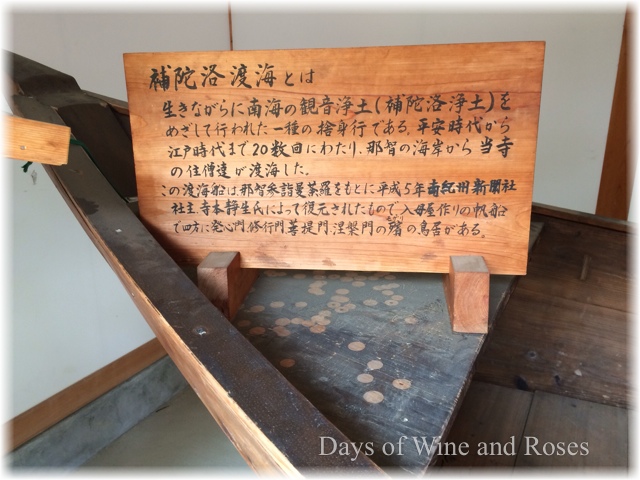 補陀洛渡海とは
生きながらに南海の観音浄土(補陀洛浄土)を
めざして行われた一種の捨身行である。平安時代から
江戸時代まで20数回にわたり、那智の海岸から当寺
の住僧達が渡海した。
この渡海船は那智参詣曼荼羅をもとに平成5年南紀州新聞社
社主、寺本静生氏によって復元されたもので入母屋作りの帆船
で四方に発心門、修行門、菩提門、涅槃門の の鳥居がある。
Days of Wine and Roses